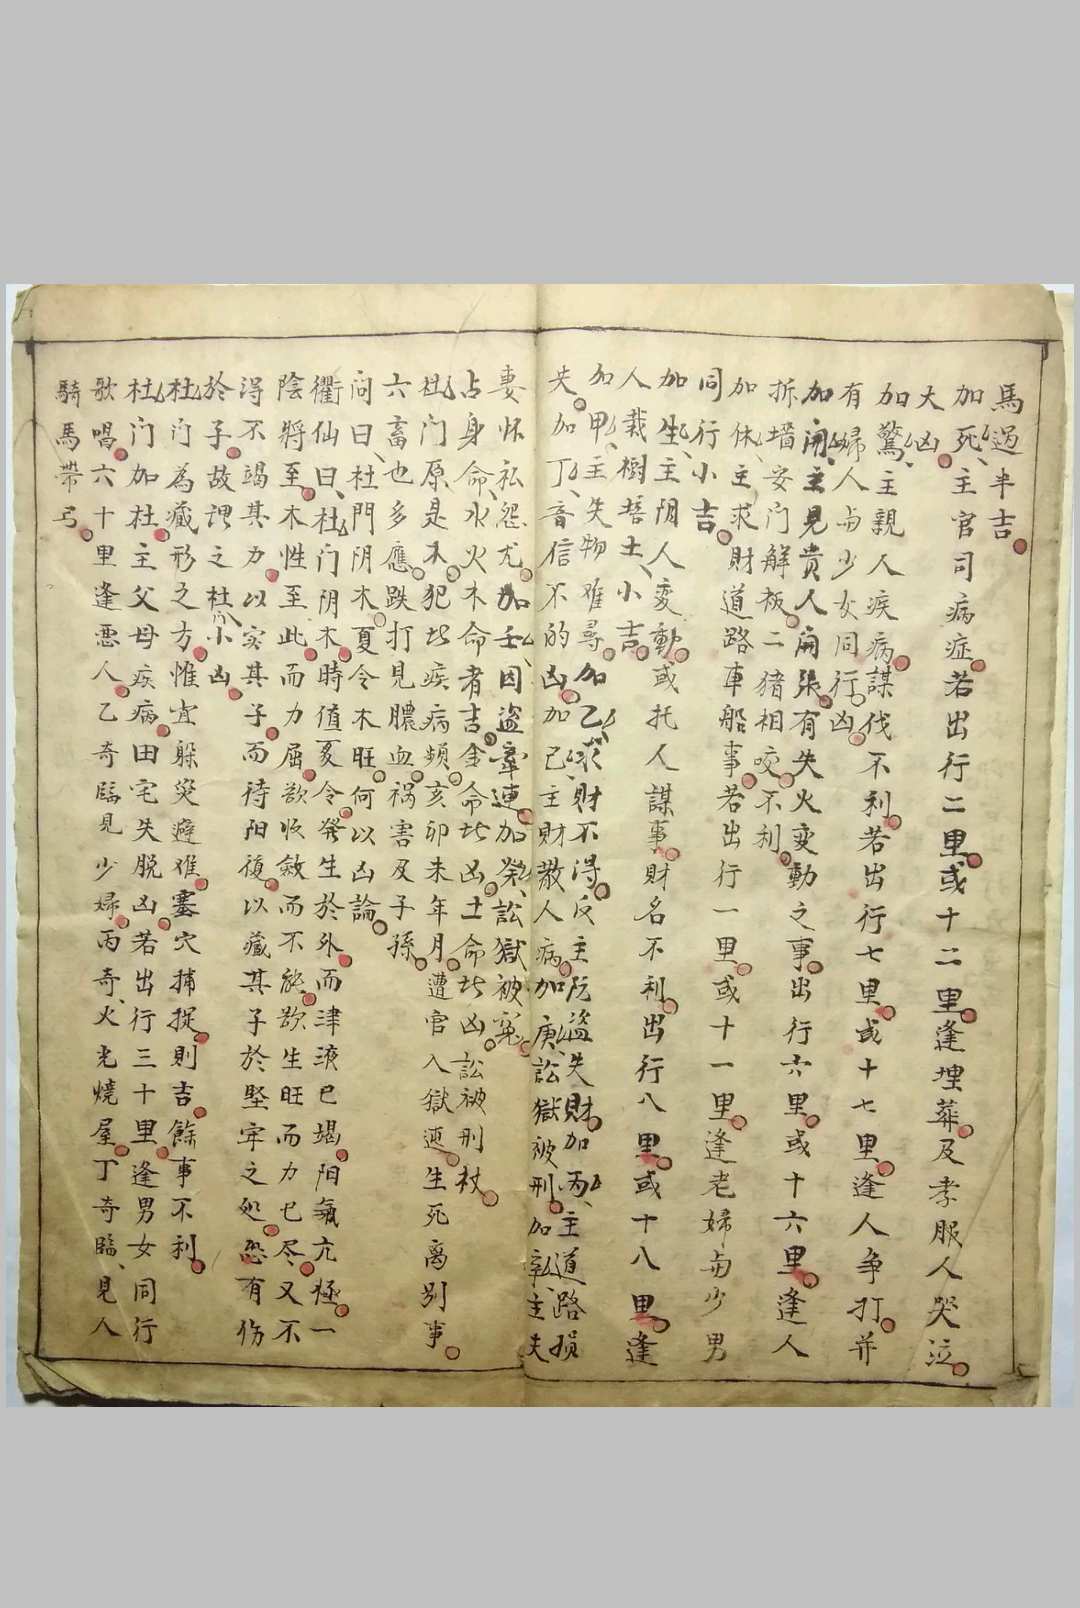 馬過半吉
加死主官司病症若出行二里或十二里逢埋葬及孝服人哭泣
大凶
加驚主親人疾病謀伐不利若出行七里或十七里逢人争打并
有婦人与少女同行凶
加開主見贵人開張有失火变動之事出行六里或十六里逢人
拆墻安门解板二猪相咬不利
加休主求財道路車船事若出行一里或十一里逢老婦与少男
同行小吉
加生主阴人变動或托人謀事財名不利出行八里或十八里逢
人栽樹培土小吉
加甲主失物难尋加乙求財不得反主阮盗失財加丙主道路损
失加丁音信不的凶加己主財散人病加庚訟獄被刑加辛主夫
妻怀私怨尤加壬因盗牽連加癸訟獄被冤
占身命水火木命者吉金命此凶土命此凶訟被刑杖
杜门原是木犯此疾病頻亥卯未年月遭官入獄逥生死离别事
六畜也多應跌打見膿血祸害及子孫
问曰杜門阴木夏令木旺何以凶論
衢仙曰杜门阴木時值夏令發生於外而津液已竭阳氣亢極一
陰將至木性至此而力屈欲收斂而不能欲生旺而力已尽又不
得不竭其力以实其子而待阳復以藏其子於堅牢之処恐有伤
於子故谓之杜小凶
杜门為藏形之方惟宜躲災避难塞穴捕捉則吉餘事不利
杜门加杜主父母疾病田宅失脱凶若出行三十里逢男女同行
歌唱六十里逢悪人乙奇臨見少婦丙奇火光燒屋丁奇臨見人
騎馬帶弓